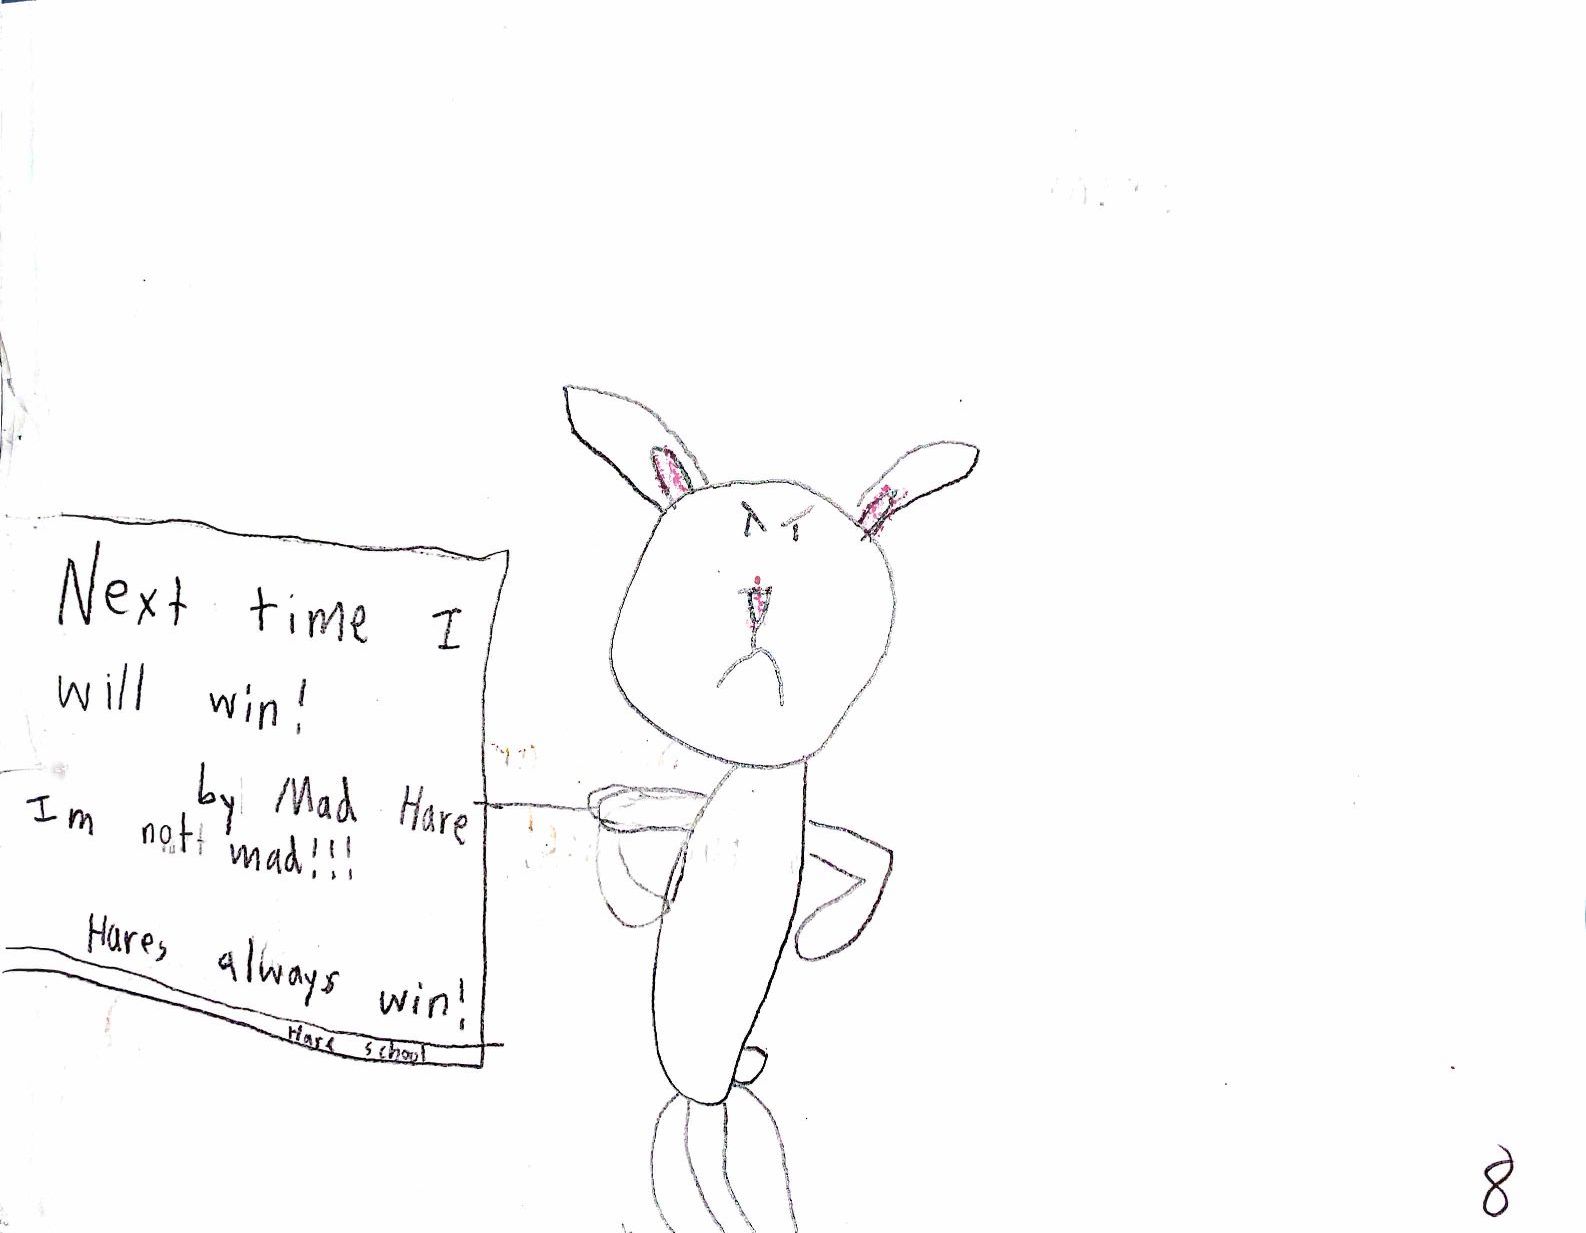 Next time I
will win!
by Mad Hare
Im not mad!!!
Hares always win!
Hare school
8